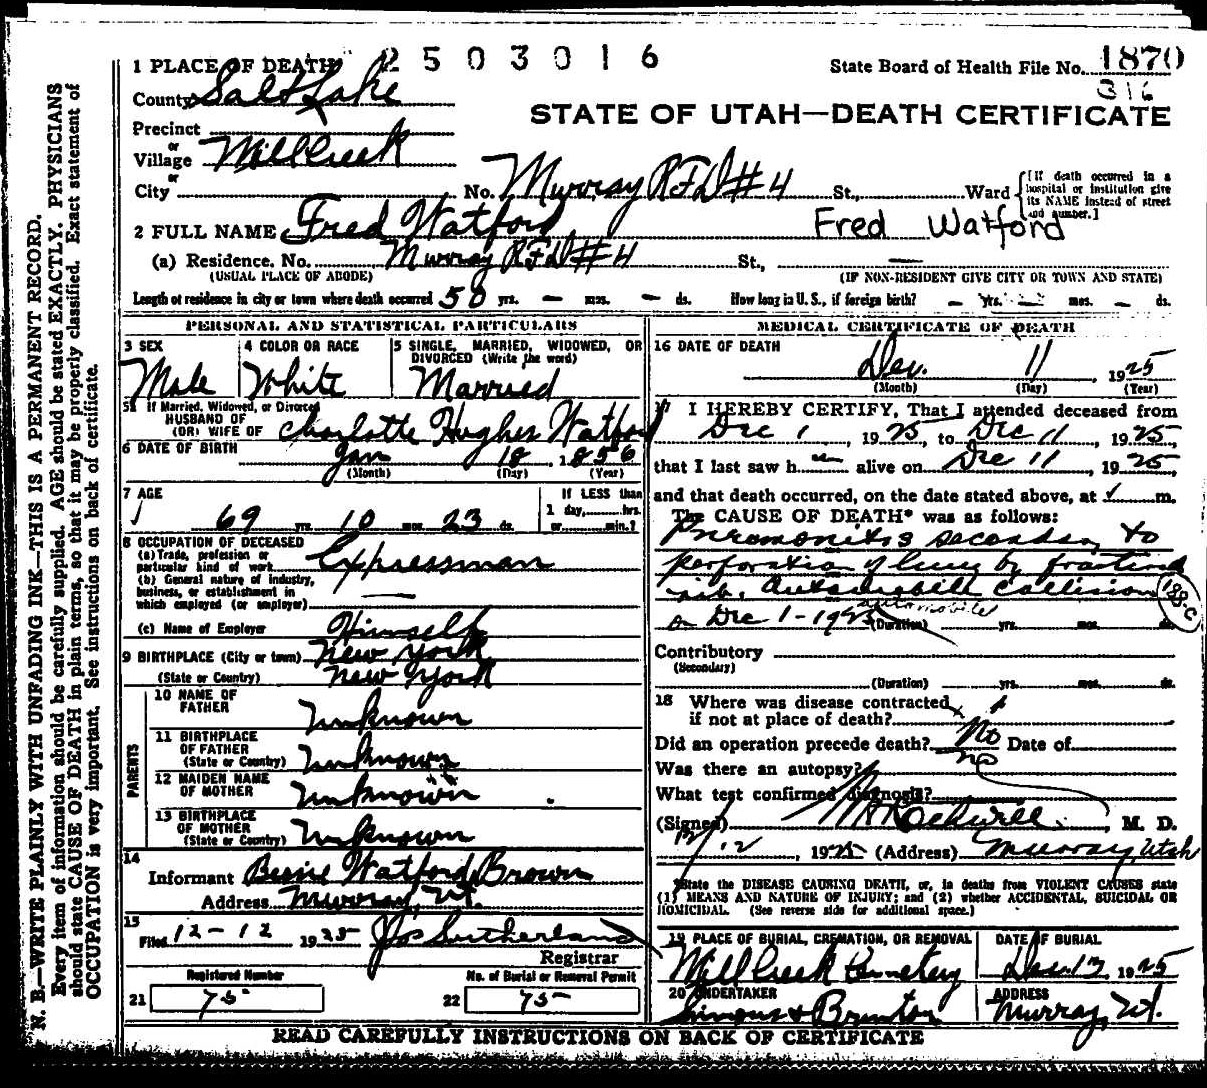 2503016
1 PLACE OF DEATH
State Board of Health File No. 1870
316
County Salt Lake
STATE OF UTAH—DEATH CERTIFICATE
Precinct
or
Village Mill Creek
or
City No. Murray RFD #4 St., Ward
[If death occurred in a hospital or institution give its NAME instead of street and number.]
2 FULL NAME Fred Watford Fred Watford
(a) Residence. No. Murray RFD #4 St., —
(USUAL PLACE OF ABODE) (IF NON-RESIDENT GIVE CITY OR TOWN AND STATE)
Length of residence in city or town where death occurred 50 yrs. — mos. — ds. How long in U. S., if foreign birth? — yrs. — mos. — ds.
PERSONAL AND STATISTICAL PARTICULARS
3 SEX
Male
4 COLOR OR RACE
White
5 SINGLE, MARRIED, WIDOWED, OR DIVORCED (Write the word)
Married
5a If Married, Widowed, or Divorced
HUSBAND OF
(OR) WIFE OF Charlotte Hughes Watford
6 DATE OF BIRTH Jan 18, 1856
(Month) (Day) (Year)
7 AGE
69 yrs. 10 mos. 23 ds.
If LESS than 1 day, hrs. or min.?
8 OCCUPATION OF DECEASED
(a) Trade, profession or particular kind of work Expressman
(b) General nature of industry, business, or establishment in which employed (or employer) —
(c) Name of Employer Himself
9 BIRTHPLACE (City or town) New York
(State or Country) New York
PARENTS
10 NAME OF FATHER Unknown
11 BIRTHPLACE OF FATHER (State or Country) Unknown
12 MAIDEN NAME OF MOTHER Unknown
13 BIRTHPLACE OF MOTHER (State or Country) Unknown
14
Informant Bessie Watford Brown
Address Murray, Ut.
15
Filed 12-12 1925 Jos Sutherland
Registrar
Registered Number
21 75
No. of Burial or Removal Permit
22 75
MEDICAL CERTIFICATE OF DEATH
16 DATE OF DEATH
Dec. 11 1925
(Month) (Day) (Year)
17 I HEREBY CERTIFY, That I attended deceased from
Dec 1, 1925, to Dec 11, 1925
that I last saw h im alive on Dec 11, 1925
and that death occurred, on the date stated above, at m.
The CAUSE OF DEATH* was as follows:
Pneumonitis secondary to
perforation of lung by fractured
rib. Automobile Collision
on Dec 1-1925 automobile
188-c
(Duration) yrs. mos. ds.
Contributory
(Secondary)
(Duration) yrs. mos. ds.
18 Where was disease contracted
if not at place of death?
Did an operation precede death? No Date of
Was there an autopsy? no
What test confirmed diagnosis?
(Signed) Rockwell, M. D.
12/12, 1925 (Address) Murray, Utah
*State the DISEASE CAUSING DEATH, or, in deaths from VIOLENT CAUSES state
(1) MEANS AND NATURE OF INJURY; and (2) whether ACCIDENTAL, SUICIDAL OR
HOMICIDAL. (See reverse side for additional space.)
19 PLACE OF BURIAL, CREMATION, OR REMOVAL
Mill Creek Cemetery
DATE OF BURIAL
Dec. 13, 1925
20 UNDERTAKER
Simons & Brunton
ADDRESS
Murray, Ut.
READ CAREFULLY INSTRUCTIONS ON BACK OF CERTIFICATE
N. B.—WRITE PLAINLY WITH UNFADING INK—THIS IS A PERMANENT RECORD.
Every item of information should be carefully supplied. AGE should be stated EXACTLY. PHYSICIANS
should state CAUSE OF DEATH in plain terms, so that it may be properly classified. Exact statement of
OCCUPATION is very important. See instructions on back of certificate.